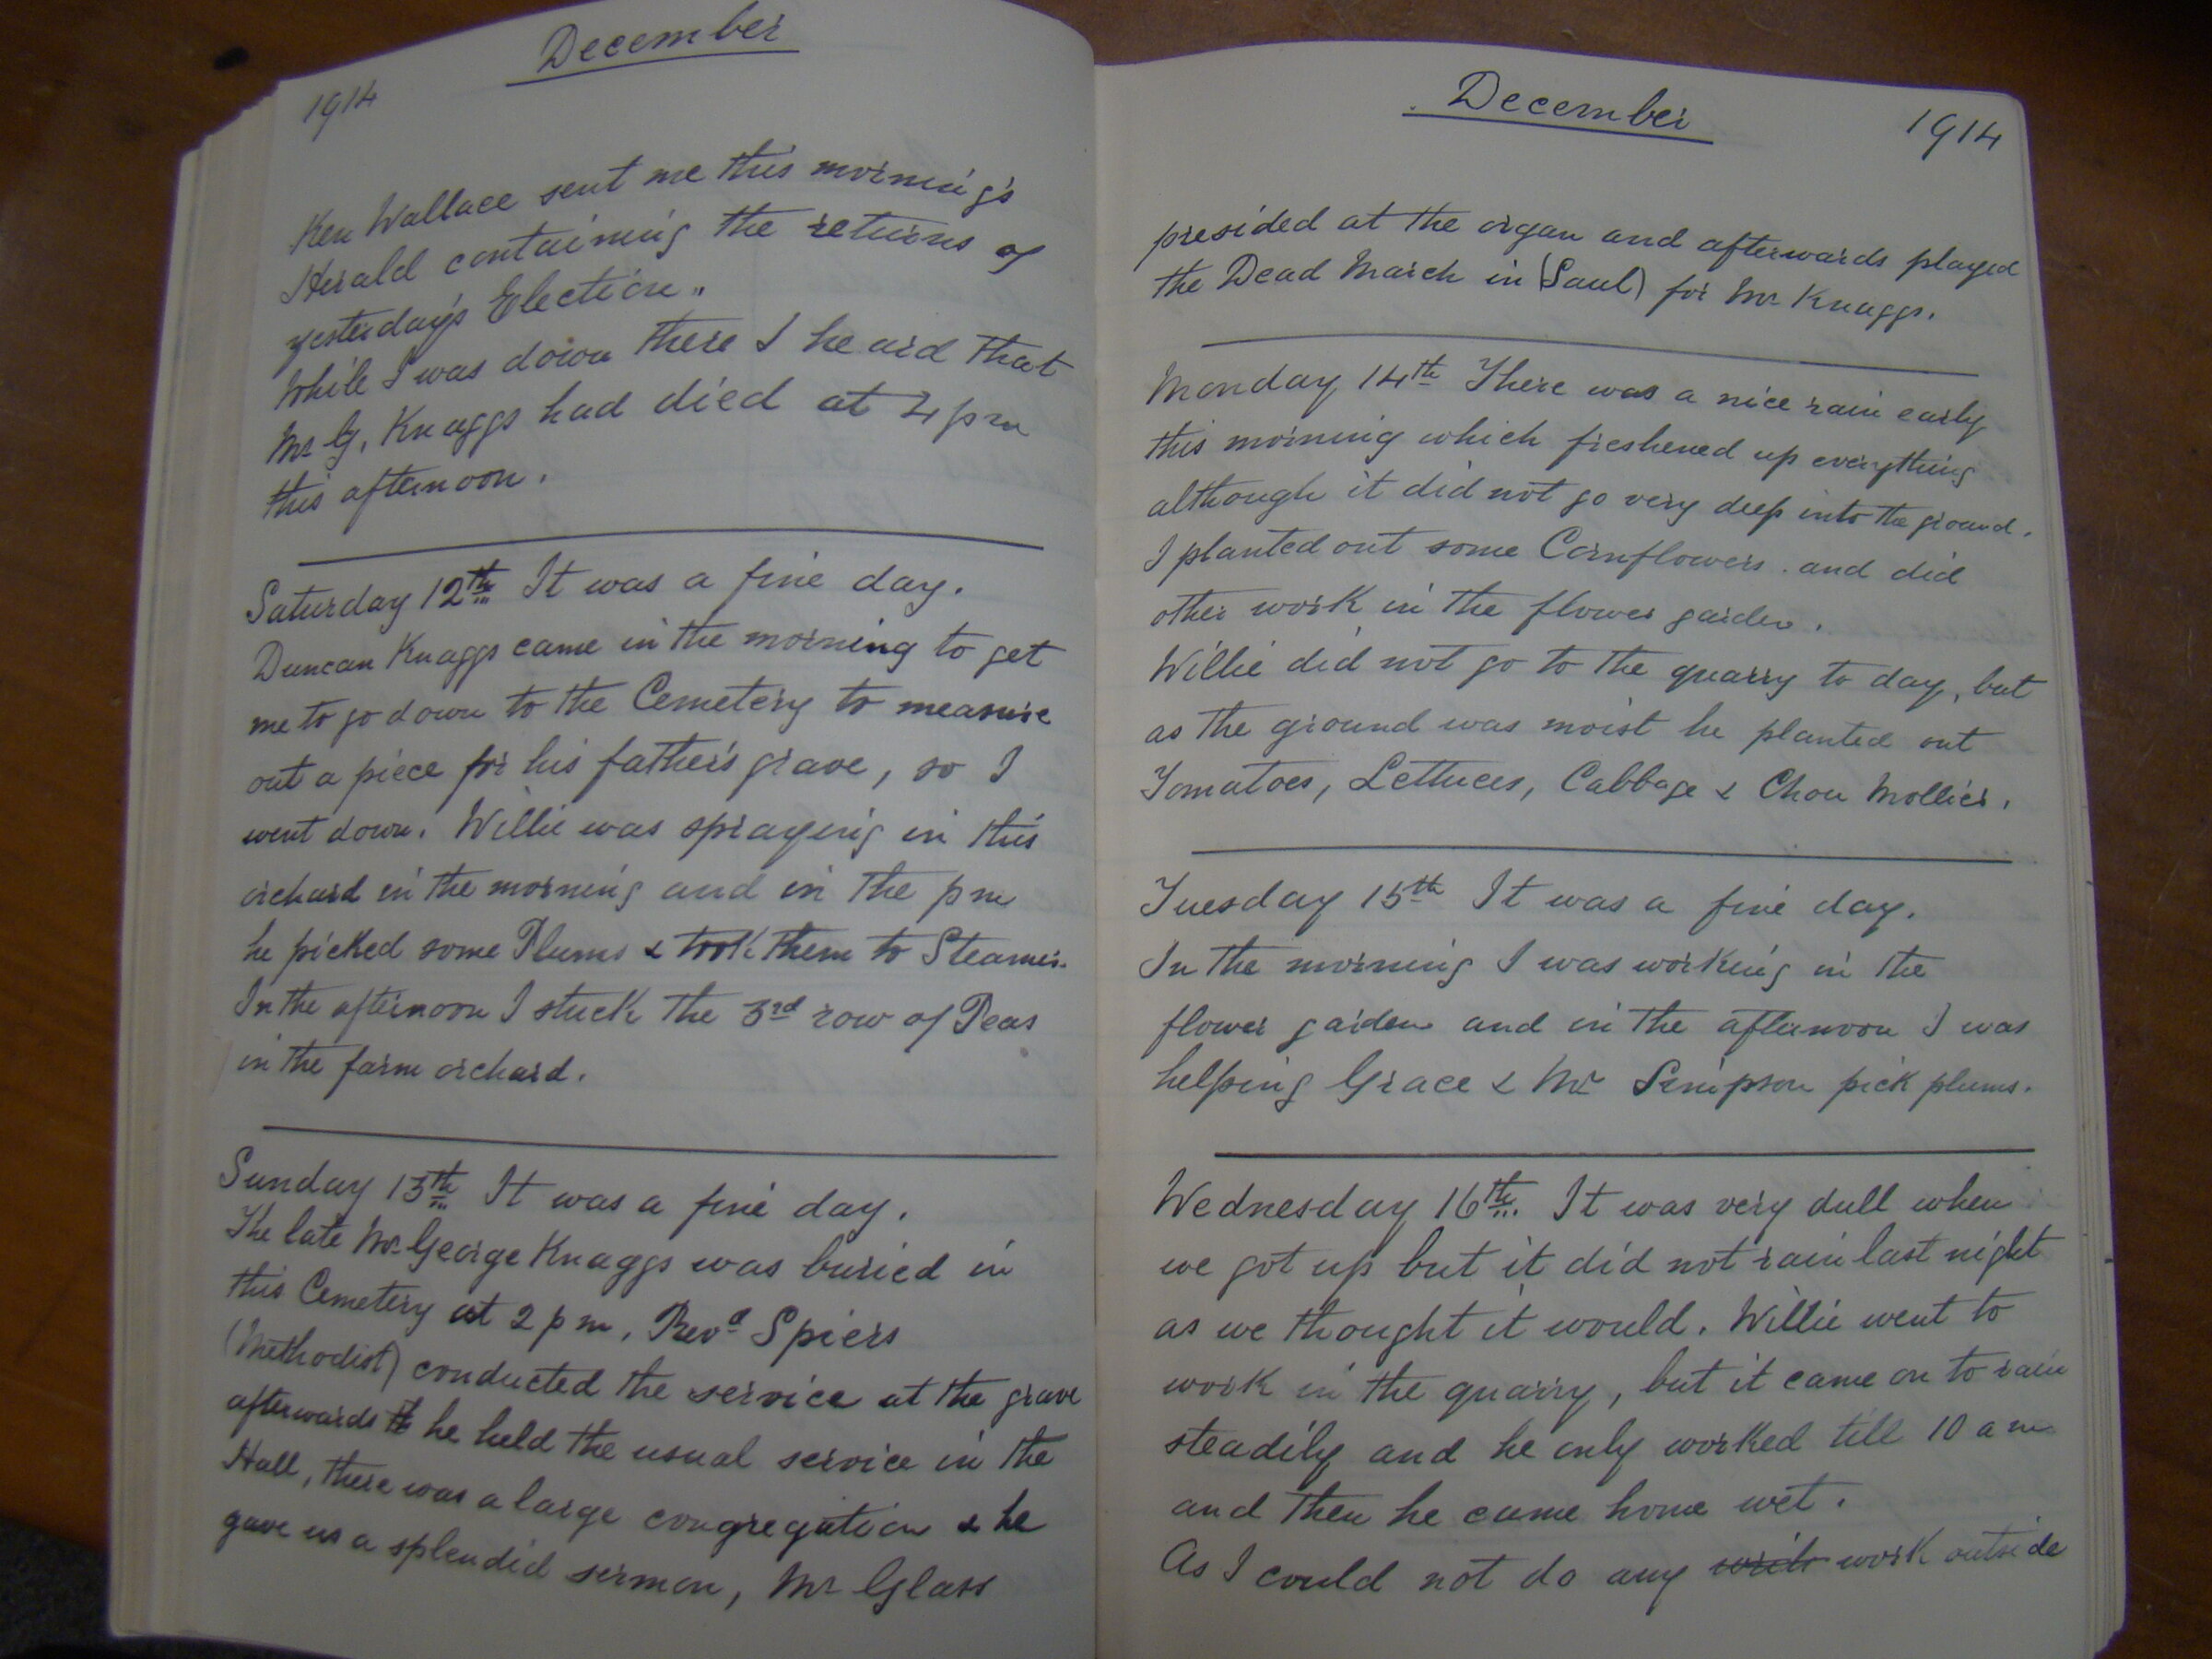 December
1914
Ken Wallace sent me this morning's
Herald containing the returns of
yesterday's Election.
While I was down there I heard that
Mr G. Knaggs had died at 4 pm
this afternoon.
Saturday 12th It was a fine day.
Duncan Knaggs came in the morning to get
me to go down to the Cemetery to measure
out a piece for his father's grave, so I
went down. Willie was spraying in this
orchard in the morning and in the pm
he picked some Plums & took them to Steamer.
In the afternoon I stuck the 3rd row of Peas
in the farm orchard.
Sunday 13th It was a fine day.
The late Mr George Knaggs was buried in
this Cemetery at 2 p m, Revd Spiers
(Methodist) conducted the service at the grave
afterwards he held the usual service in the
Hall, there was a large congregation & he
gave us a splendid sermon, Mr Glass
December
1914
presided at the organ and afterwards played
the Dead March in (Saul) for Mr Knaggs.
Monday 14th There was a nice rain early
this morning which freshened up everything
although it did not go very deep into the ground.
I planted out some Cornflowers. and did
other work in the flower garden.
Willie did not go to the quarry to day, but
as the ground was moist he planted out
Tomatoes, Lettuces, Cabbage & Chou Mollier.
Tuesday 15th It was a fine day.
In the morning I was working in the
flower garden and in the afternoon I was
helping Grace & Mr Simpson pick plums.
Wednesday 16th. It was very dull when
we got up but it did not rain last night
as we thought it would. Willie went to
work in the quarry, but it came on to rain
steadily and he only worked till 10 am
and then he came home wet.
As I could not do any work outside